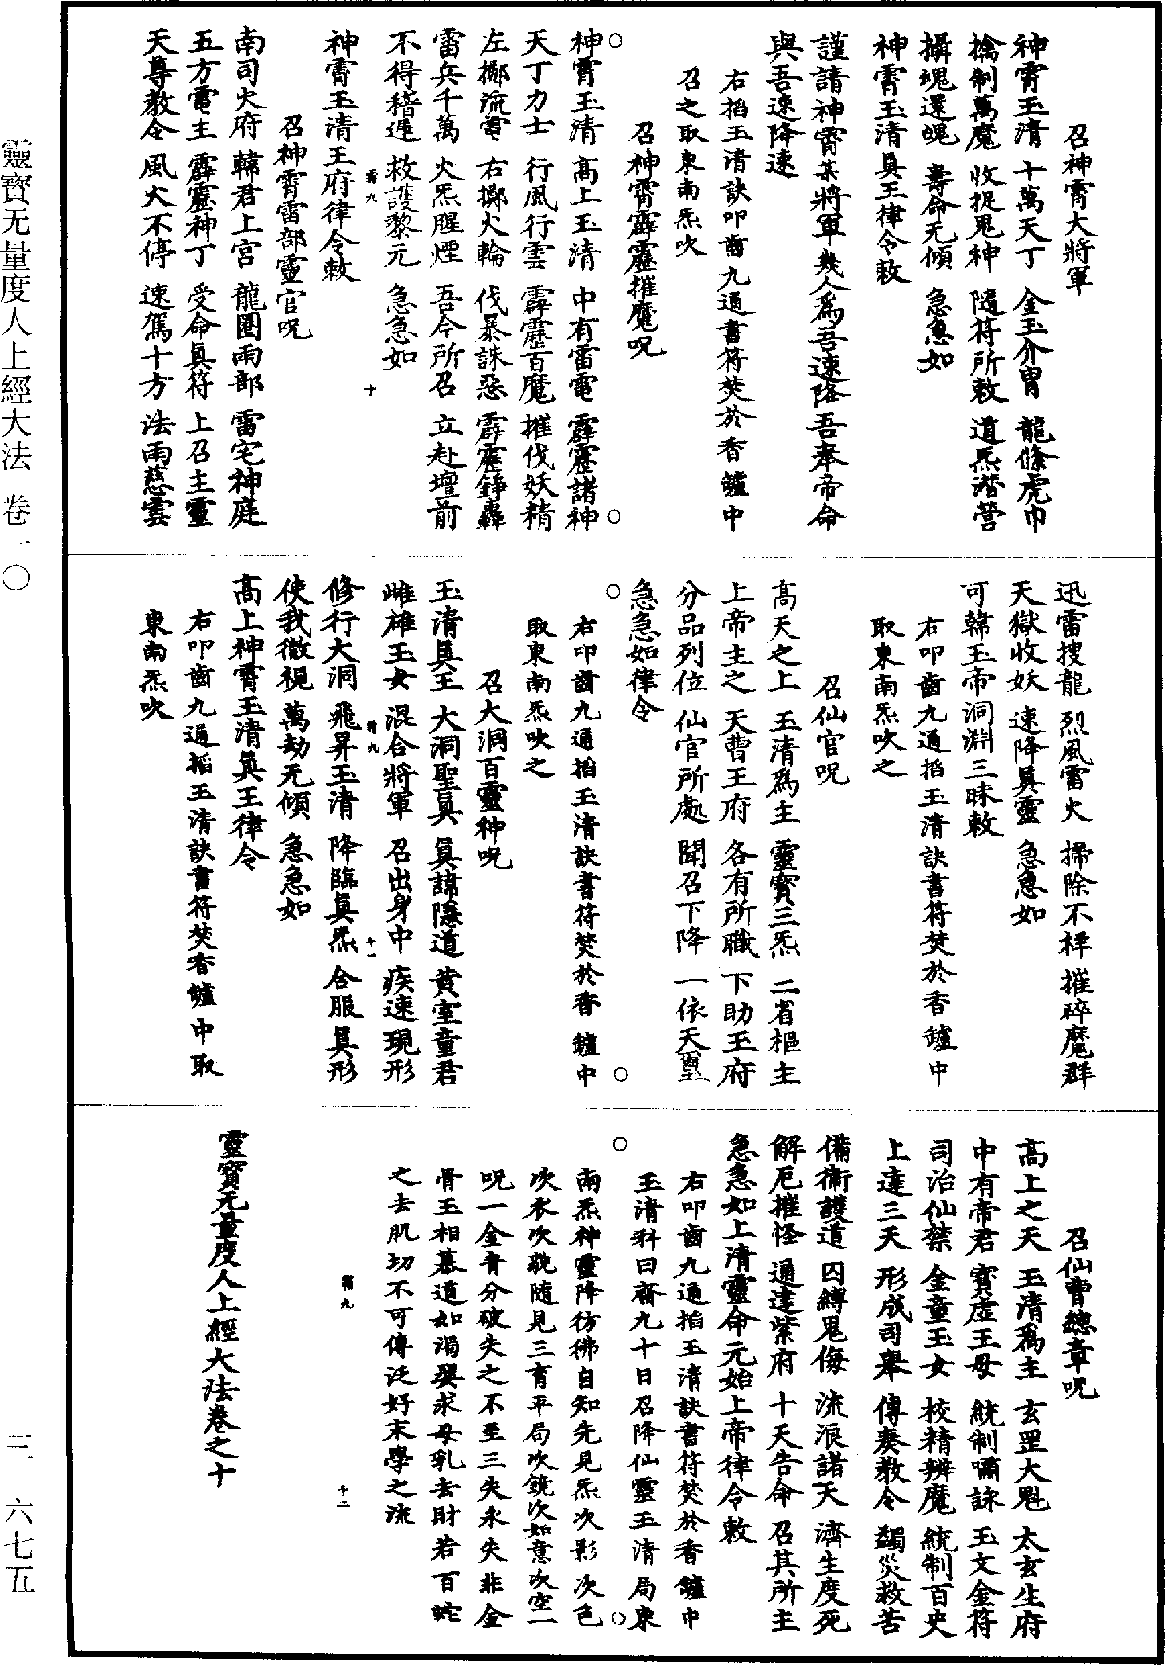 召神霄大將軍
神霄玉清 十萬天丁 金玉介冑 龍絛虎巾
擒制萬魔 收捉鬼神 隨符所敕 道炁潛營
攝魂還魄 壽命无傾 急急如
神霄玉清真王律令敕
謹請神霄某將軍幾人爲吾速降吾奉帝命
與吾速降速
右掐玉清訣叩齒九通書符焚於香鑪中
召之取東南炁吹
召神霄霹靂摧魔呪
神霄玉清 高上玉清 中有雷電 霹靂諸神
天丁力士 行風行雲 霹靂百魔 摧伐妖精
左擲流電 右擲火輪 伐暴誅惡 霹靂錚轟
雷兵千萬 火炁腥煙 吾今所召 立赴壇前
不得稽遲 救護黎元 急急如
神霄玉清王府律令敕
召神霄雷部靈官呪
南司火府 韓君上宮 龍圉雨部 雷宅神庭
五方雷主 霹靂神丁 受命真符 上召主靈
天尊教令 風火不停 速駕十方 法雨慈雲
迅雷搜龍 烈風雷火 掃除不祥 摧碎魔群
天獄收妖 速降真靈 急急如
可韓玉帝洞淵三昧敕
右叩齒九通掐玉清訣書符焚於香鑪中
取東南炁吹之
召仙官呪
高天之上 玉清爲主 靈寶三炁 二省樞主
上帝主之 天曹王府 各有所職 下助王府
分品列位 仙官所處 聞召下降 一依天
急急如律令
右叩齒九通掐玉清訣書符焚於香鑪中
取東南炁吹之
召大洞百靈神呪
玉清真王 大洞聖真 真諱隱道 黃室童君
雌雄玉女 混合將軍 召出身中 疾速現形
修行大洞 飛昇玉清 降臨真炁 合服真形
使我微視 萬劫无傾 急急如
高上神霄玉清真王律令
右叩齒九通掐玉清訣書符焚香鑪中取
東南炁吹
召仙曹總章呪
高上之天 玉清爲主 玄罡大魁 太玄生府
中有帝君 寶虛王母 統制嘯詠 玉文金符
司治仙禁 金童玉女 校精辨魔 統制百史
上達三天 形成司舉 傳奏教令 蠲災救苦
備衛護道 囚縛鬼侮 流浪諸天 濟生度死
解厄摧怪 通達紫府 十天告命 召其所主
急急如上清靈命元始上帝律令敕
右叩齒九通掐玉清訣書符焚於香鑪中
玉清科曰齋九十日召降仙靈玉清局東
兩炁神靈降彷彿自知先見炁次影次色
次衣次貌隨見三育平局次鏡次如意次空二
呪一金青分破失之不至三失永失非金
骨玉相慕道如渴嬰求母乳去財若百蛇
之去肌切不可傳泛好末學之流
靈寶无量度人上經大法卷之十
霜九 十
霜九 十一
霜九 十二
靈寶无量度人上經大法 卷一〇
三 六七五